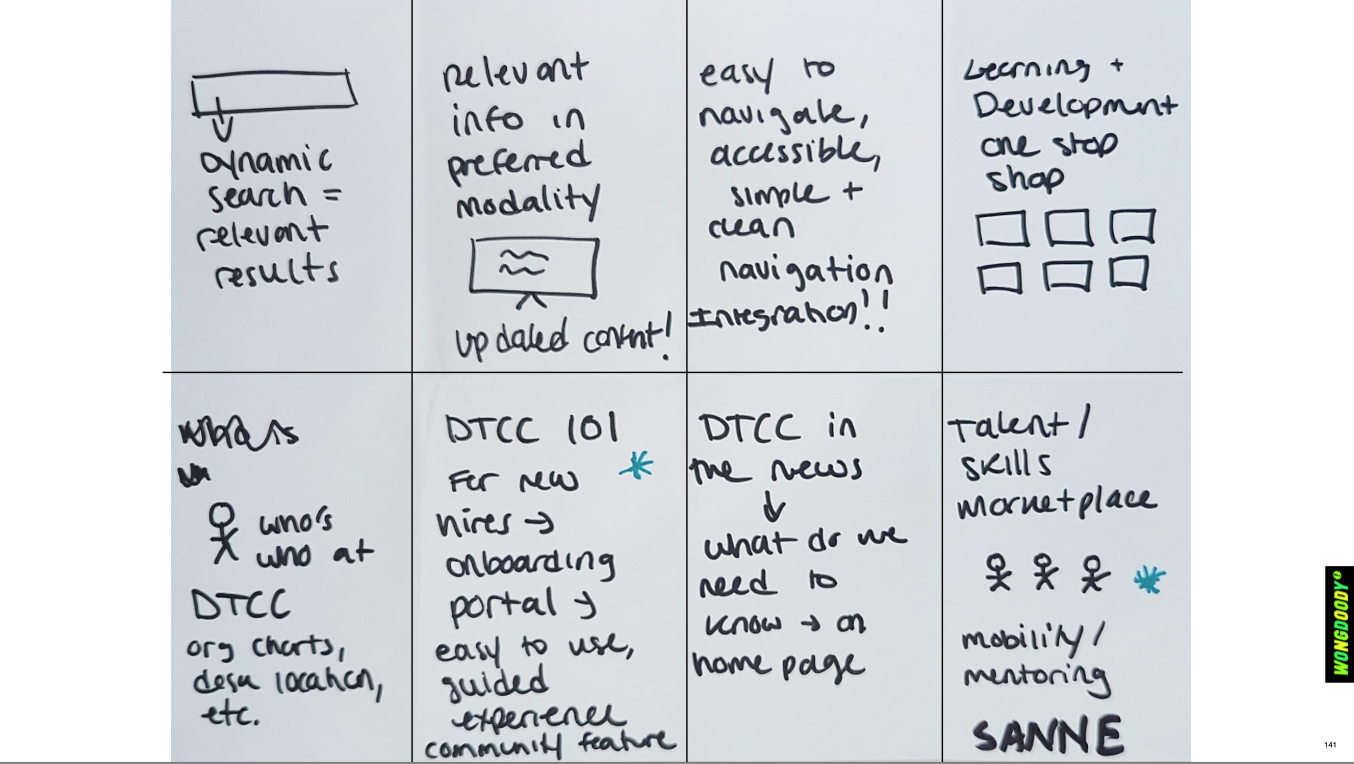 Dynamic
search =
relevant
results
relevant
info in
preferred
modality
updated content!
easy to
navigate,
accessible,
simple +
clean
navigation
Integration!!
Learning +
Development
one stop
shop
who's
who at
DTCC
org charts,
desk location,
etc.
DTCC 101
For new
hires →
onboarding
portal →
easy to use,
guided
experience
community feature
DTCC in
the news
↓
what do we
need to
know → on
home page
Talent/
skills
marketplace
mobility/
mentoring
SANNE
WONGDOODY
141